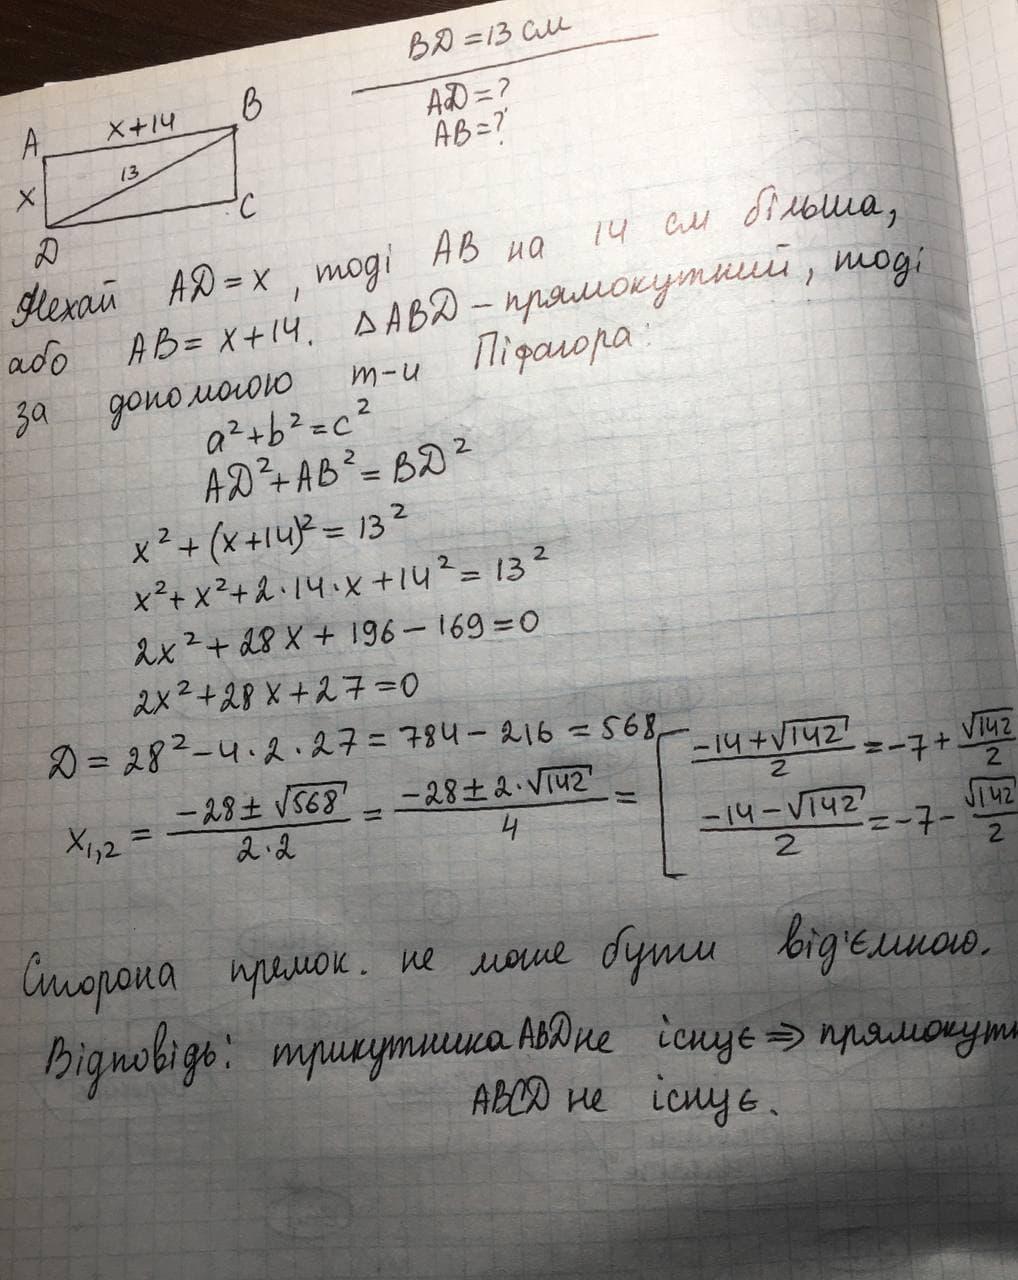 BD = 13 см
AD = ?
AB = ?
A
x+14
B
x
13
C
D
Нехай AD = x, тоді AB на 14 см більша,
або AB = x+14. ΔABD – прямокутний, тоді
за допомогою т-и Піфагора:
a² + b² = c²
AD² + AB² = BD²
x² + (x+14)² = 13²
x² + x² + 2·14·x + 14² = 13²
2x² + 28x + 196 – 169 = 0
2x² + 28x + 27 = 0
D = 28² – 4·2·27 = 784 – 216 = 568
x₁,₂ = (-28 ± √568)/(2·2) = (-28 ± 2·√142)/4 = [ (-14 + √142)/2 = -7 + √142/2
(-14 - √142)/2 = -7 - √142/2
Сторона прямок. не може бути від'ємною.
Відповідь: трикутника ABD не існує ⇒ прямокутн
ABCD не існує.